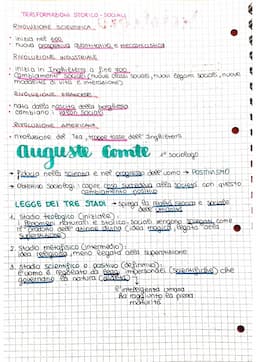 TRASFORMAZIONI STORICO-SOCIALI
RIVOLUZIONE SCIENTIFICA
• inizia nel '600
• nuova prospettiva quantitativa e meccanicistica
RIVOLUZIONE INDUSTRIALE
• inizia in Inghilterra a fine '700
• cambiamenti sociali (nuove classi sociali, nuovi legami sociali, nuove
modalità di vita e interazioni)
RIVOLUZIONE FRANCESE
• nata dalla nascita della borghesia
• cambiano i valori sociali
RIVOLUZIONE AMERICANA
• rivoluzione del Tea, troppe tasse dall'Inghilterra
Auguste Comte 1° sociologo
→ fiducia nella scienza e nel progresso dell'uomo → POSITIVISMO
→ obiettivo sociologi: capire cosa succedeva alla società con questo
cambiamento positivo
LEGGE DEI TRE STADI → spiega la realtà storica e sociale
dell'umanità
1. Stadio teologico (iniziale)
i fenomeni naturali e storico-sociali vengono spiegati come
il prodotto dell'azione divina (idea magica, legata alla
superstizione)
2. Stadio metafisico (intermedio):
idea religiosa, meno legata alla superstizione
3. Stadio scientifico e positivo (definitivo):
l'uomo è regolato da leggi impersonali (scientifiche) che
governano la natura (aldilà)
l'intelligenza umana
ha raggiunto la piena
maturità